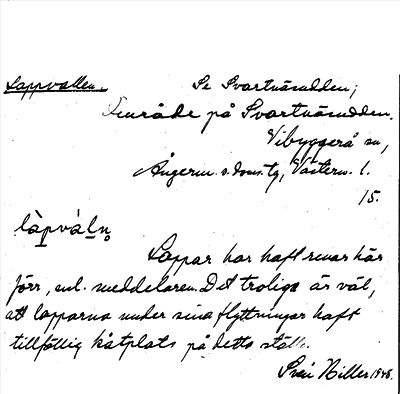 Lappvallen.
Se Svartnäsudden;
Område på Svartnäsudden.
Vibyggerå sn,
Ångerm. s. doms. tg, Västern. l.
15.
làpvàl̥n̥
Lappar har haft renar här
förr, enl. meddelaren. Det troliga är väl,
att lapparna under sina flyttningar haft
tillfällig kåtplats på detta ställe.
Sven Hiller 1948.